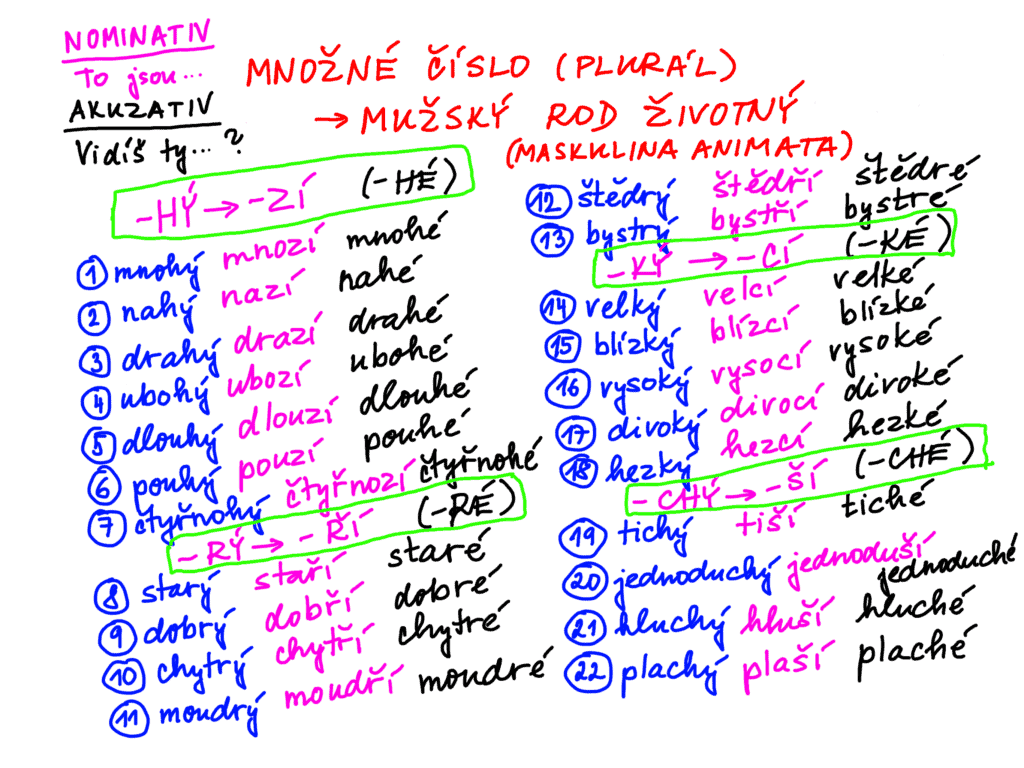 NOMINATIV
To jsou...
AKUZATIV
Vidíš ty...?
MNOŽNÉ ČÍSLO (PLURÁL)
→ MUŽSKÝ ROD ŽIVOTNÝ
(MASKULINA ANIMATA)
-HÝ → -ZÍ (-HÉ)
1 mnohý mnozí mnohé
2 nahý nazí nahé
3 drahý drazí drahé
4 ubohý ubozí ubohé
5 dlouhý dlouzí dlouhé
6 pouhý pouzí pouhé
7 čtyřnohý čtyřnozí čtyřnohé
-RÝ → -ŘÍ (-RÉ)
8 starý staří staré
9 dobrý dobří dobré
10 chytrý chytří chytré
11 moudrý moudří moudré
12 štědrý štědří štědré
13 bystrý bystří bystré
-KÝ → -CÍ (-KÉ)
14 velký velcí velké
15 blízký blízcí blízké
16 vysoký vysocí vysoké
17 divoký divocí divoké
18 hezký hezcí hezké
-CHÝ → -ŠÍ (-CHÉ)
19 tichý tiší tiché
20 jednoduchý jednoduší jednoduché
21 hluchý hluší hluché
22 plachý plaší plaché